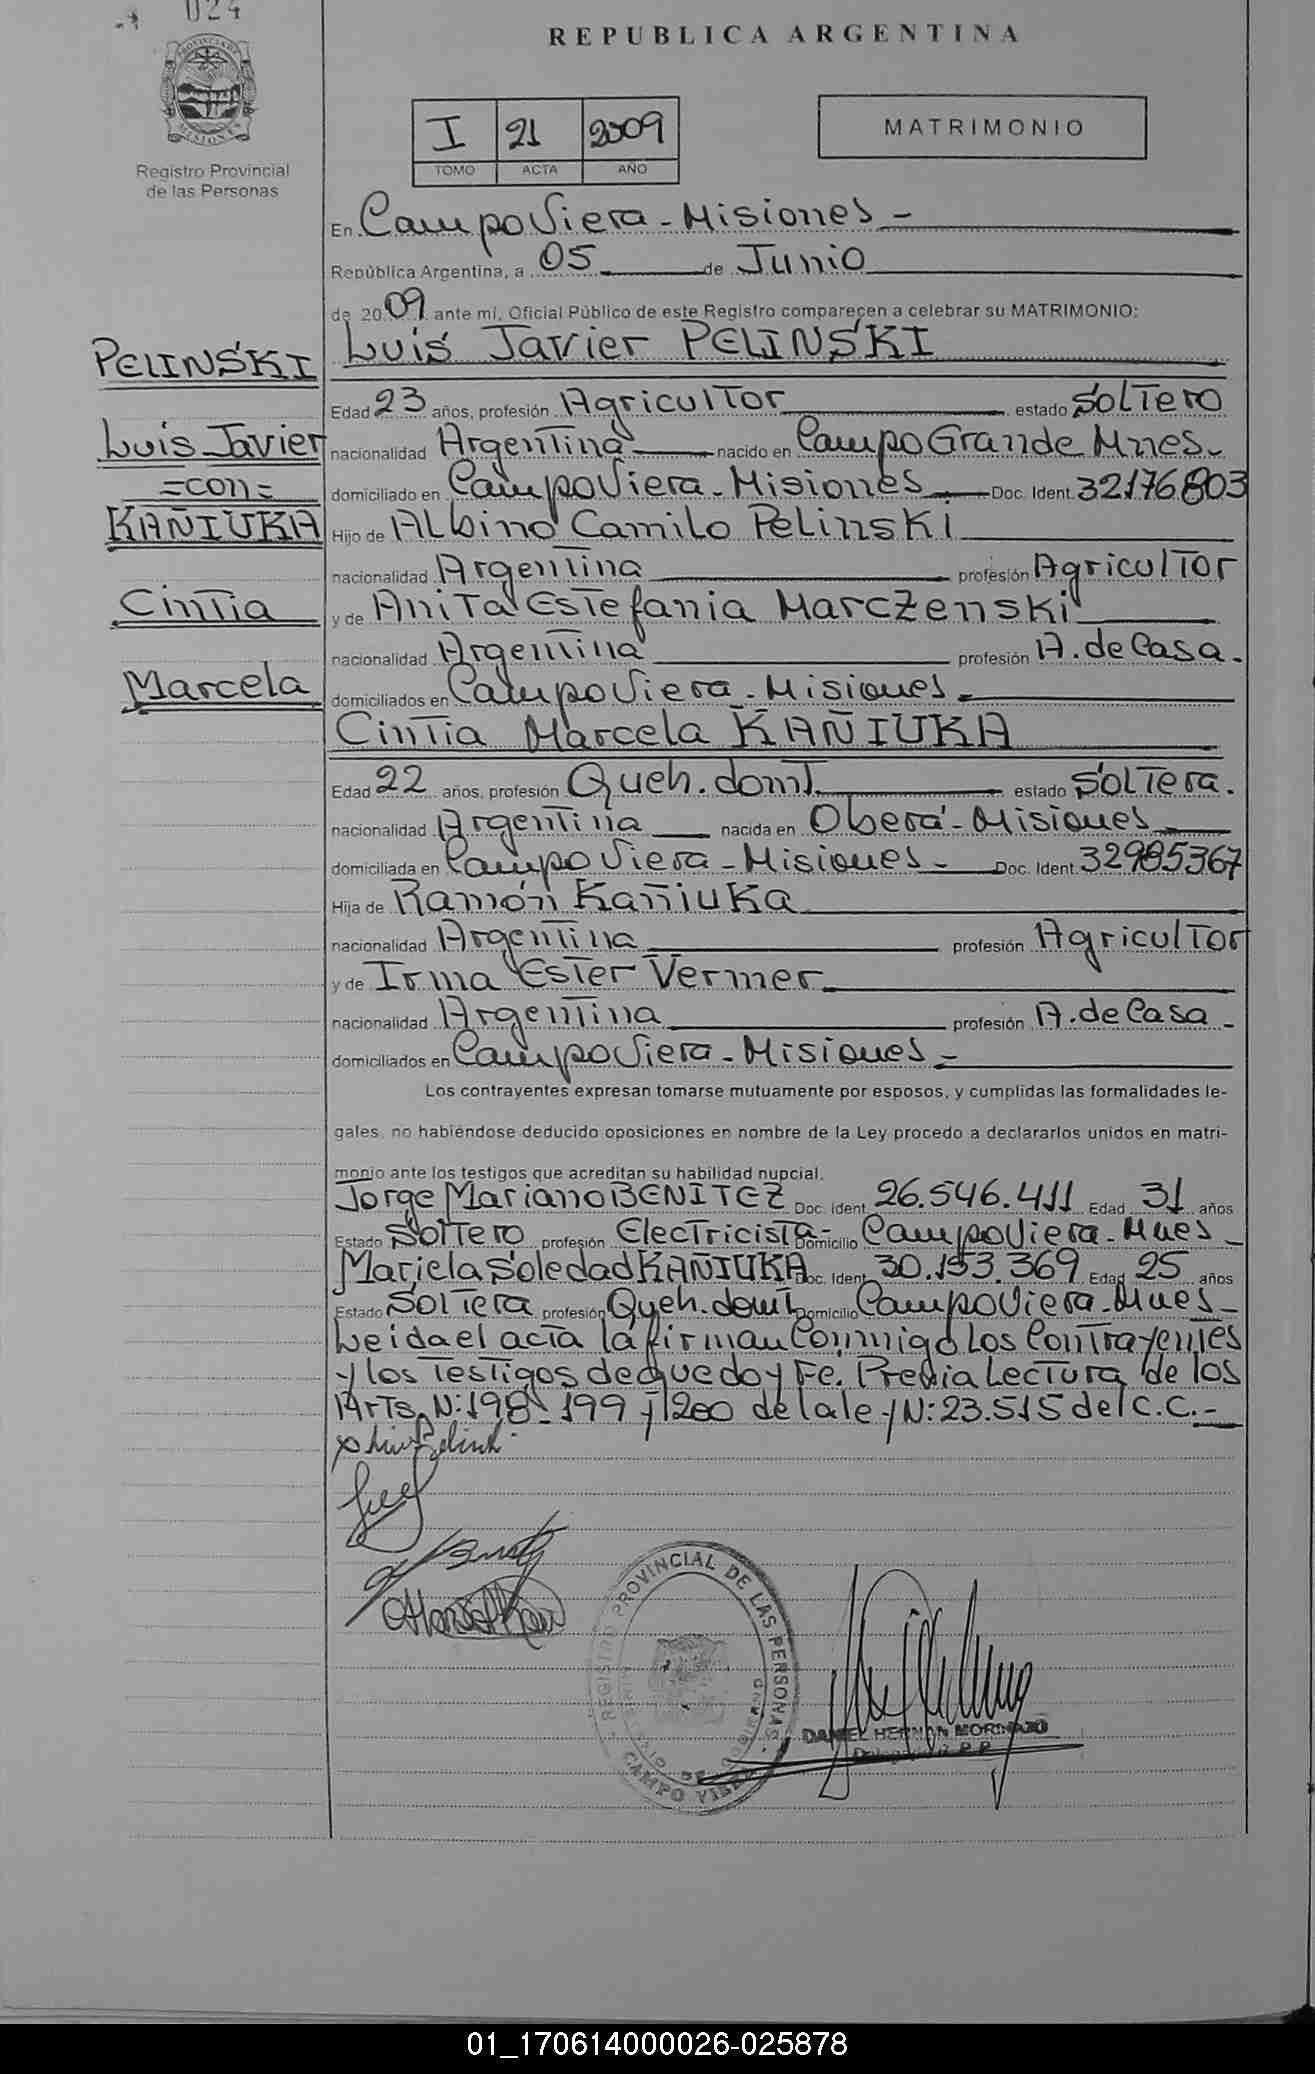 024
REPUBLICA ARGENTINA
PROVINCIA DE MISIONES
Registro Provincial
de las Personas
I 21 2009
TOMO ACTA AÑO
MATRIMONIO
En Campo Viera - Misiones -
República Argentina, a 05 de Junio
de 2009 ante mí, Oficial Público de este Registro comparecen a celebrar su MATRIMONIO:
PELINSKI
Luis Javier
=con=
KAÑIUKA
Cintia
Marcela
Luis Javier PELINSKI
Edad 23 años, profesión Agricultor estado Soltero
nacionalidad Argentina nacido en Campo Grande Mnes.
domiciliado en Campo Viera - Misiones Doc. Ident. 32176803
Hijo de Albino Camilo Pelinski
nacionalidad Argentina profesión Agricultor
y de Anita Estefania Marczenski
nacionalidad Argentina profesión A. de Casa.
domiciliados en Campo Viera - Misiones -
Cintia Marcela KAÑIUKA
Edad 22 años, profesión Queh. domt. estado Soltera.
nacionalidad Argentina nacida en Oberá - Misiones
domiciliada en Campo Viera - Misiones - Doc. Ident. 32985367
Hija de Ramón Kañiuka
nacionalidad Argentina profesión Agricultor
y de Irma Ester Vermer
nacionalidad Argentina profesión A. de Casa -
domiciliados en Campo Viera - Misiones -
Los contrayentes expresan tomarse mutuamente por esposos, y cumplidas las formalidades le-
gales, no habiéndose deducido oposiciones en nombre de la Ley procedo a declararlos unidos en matri-
monio ante los testigos que acreditan su habilidad nupcial.
Jorge Mariano BENITEZ Doc. Ident. 26.546.411 Edad 31 años
Estado Soltero profesión Electricista - Domicilio Campo Viera - Mnes -
Mariela Soledad KAÑIUKA Doc. Ident. 30.153.369 Edad 25 años
Estado Soltera profesión Queh. domt Domicilio Campo Viera - Mnes -
Leida el acta la firman Conmigo Los Contrayentes
y los Testigos de que doy Fe. Previa Lectura de los
Arts. N: 198 - 199 y 200 de la ley N: 23.515 del C.C. -
REGISTRO PROVINCIAL DE LAS PERSONAS
MINISTERIO DE GOBIERNO
CAMPO VIERA
DANIEL HERNAN MORINAJO
01_170614000026-025878